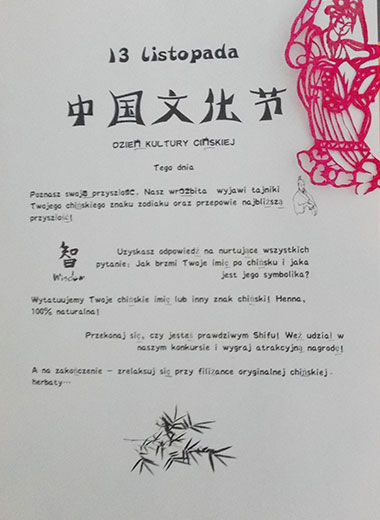 13 listopada
中国文化节
DZIEŃ KULTURY CIŃSKIEJ
Tego dnia
Poznasz swoją przyszłość. Nasz wróżbita wyjawi tajniki
Twojego chińskiego znaku zodiaku oraz przepowie najbliższą
przyszłość!
智
Wisdom
Uzyskasz odpowiedź na nurtujące wszystkich
pytanie: Jak brzmi Twoje imię po chińsku i jaka
jest jego symbolika?
Wytatuujemy Twoje chińskie imię lub inny znak chiński! Henna,
100% naturalna!
Przekonaj się, czy jesteś prawdziwym Shifu! Weź udział w
naszym konkursie i wygraj atrakcyjną nagrodę!
A na zakończenie - zrelaksuj się przy filiżance oryginalnej chińskiej
herbaty…